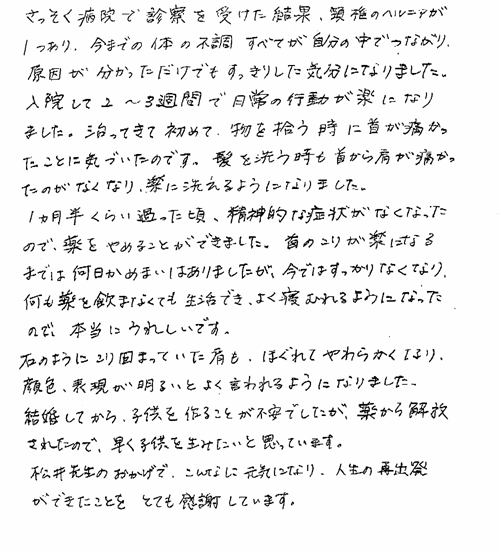 さっそく病院で診察を受けた結果、頸椎のヘルニアが
1つあり、今までの体の不調すべてが自分の中でつながり、
原因が分かっただけでもすっきりした気分になりました。
入院して2〜3週間で日常の行動が楽になり
ました。治ってきて初めて、物を拾う時に首が痛かっ
たことに気づいたのです。髪を洗う時も首から肩が痛かっ
たのがなくなり、楽に洗えるようになりました。
1カ月半くらい過った頃、精神的な症状がなくなった
ので、薬をやめることができました。首のこりが楽になる
までは何日かめまいはありましたが、今ではすっかりなくなり、
何も薬を飲まなくても生活でき、よく寝むれるようになった
ので、本当にうれしいです。
石のようにこり固まっていた肩も、ほぐれてやわらかくなり、
顔色、表現が明るいとよく言われるようになりました。
結婚してから、子供を作ることが不安でしたが、薬から解放
されたので、早く子供を生みたいと思っています。
松井先生のおかげで、こんなに元気になり、人生の再出発
ができたことをとても感謝しています。